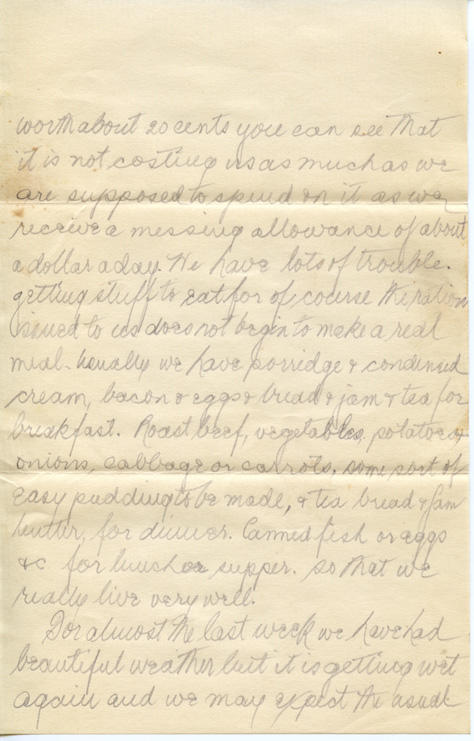 worth about 20 cents you can see that
it is not costing us as much as we
are supposed to spend on it as we
receive a messing allowance of about
a dollar a day. We have lots of trouble.
getting stuff to eat for of course the ration
issued to us does not begin to make a real
meal. Usually we have porridge & condensed
cream, bacon & eggs & bread & jam & tea for
breakfast. Roast beef, vegetables, potatoes
onions, cabbage or carrots, some sort of
easy pudding to be made, & tea bread & jam
butter, for dinner. Canned fish or eggs
&c for lunch or supper. so that we
really live very well.
For almost the last week we have had
beautiful weather but it is getting wet
again and we may expect the usual